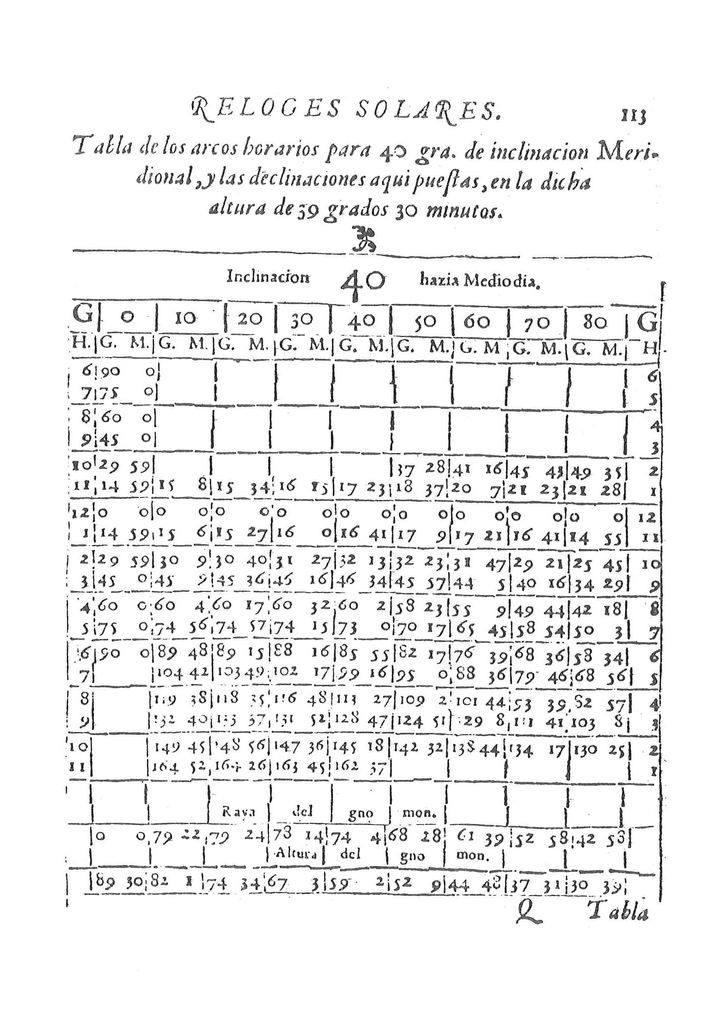 RELOGES SOLARES. 113
Tabla de los arcos horarios para 40 gra. de inclinacion Meri-
dional, y las declinaciones aqui puestas, en la dicha
altura de 39 grados 30 minutos.
Inclinacion 40 hazia Mediodia.
G 0 10 20 30 40 50 60 70 80 G
H. G. M. G. M. G. M. G. M. G. M. G. M. G. M G. M. G. M. H
6 90 0 6
7 75 0 5
8 60 0 4
9 45 0 3
10 29 59 37 28 41 16 45 43 49 35 2
11 14 59 15 8 15 34 16 15 17 23 18 37 20 7 21 23 21 28 1
12 0 0 0 0 0 0 0 0 0 0 0 0 0 0 0 0 0 0 12
1 14 59 15 6 15 27 16 0 16 41 17 9 17 21 16 41 14 55 11
2 29 59 30 9 30 40 31 27 32 13 32 23 31 47 29 21 25 45 10
3 45 0 45 9 45 36 46 16 46 34 45 57 44 5 40 16 34 29 9
4 60 0 60 4 60 17 60 32 60 2 58 23 55 9 49 44 42 18 8
5 75 0 74 56 74 57 74 15 73 0 70 17 65 45 58 54 50 3 7
6 90 0 89 48 89 15 88 16 85 55 82 17 76 39 68 36 58 34 6
7 104 42 103 49 102 17 99 16 95 0 88 36 79 46 68 56 5
8 119 38 118 35 116 48 113 27 109 2 101 44 93 39 82 57 4
9 132 40 133 37 131 52 128 47 124 51 29 8 111 41 103 8 3
10 149 45 148 56 147 36 145 18 142 32 138 44 134 17 130 25 2
11 164 52 164 26 163 45 162 37 1
Raya del gnomon.
0 0 79 22 79 24 78 14 74 4 68 28 61 39 52 58 42 58
Altura del gnomon.
89 30 82 1 74 34 67 3 59 2 52 9 44 48 37 31 30 39
Q Tabla